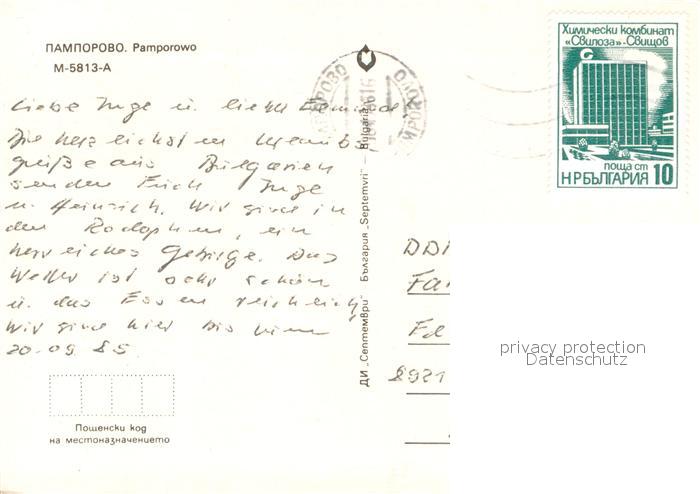 ПАМПОРОВО. Pamporowo
М-5813-А
Liebe Inge u. lieber
Die herzlichsten Urlaubs
grüße aus Bulgarien
senden Euch Inge
u. Heinrich. Wir sind in
den Rodopen, ein
herrliches Gebirge. Das
Wetter ist sehr schön
u. das Essen reichlich
Wir sind hier bis zum
20.09.85.
Пощенски код
на местоназначението
ДИ „Септември" България „Septemvri" — Bulgaria
Химически комбинат
«Свилоза»-Свищов
поща ст
НРБЪЛГАРИЯ 10
DDR
Fa
8921
privacy protection
Datenschutz